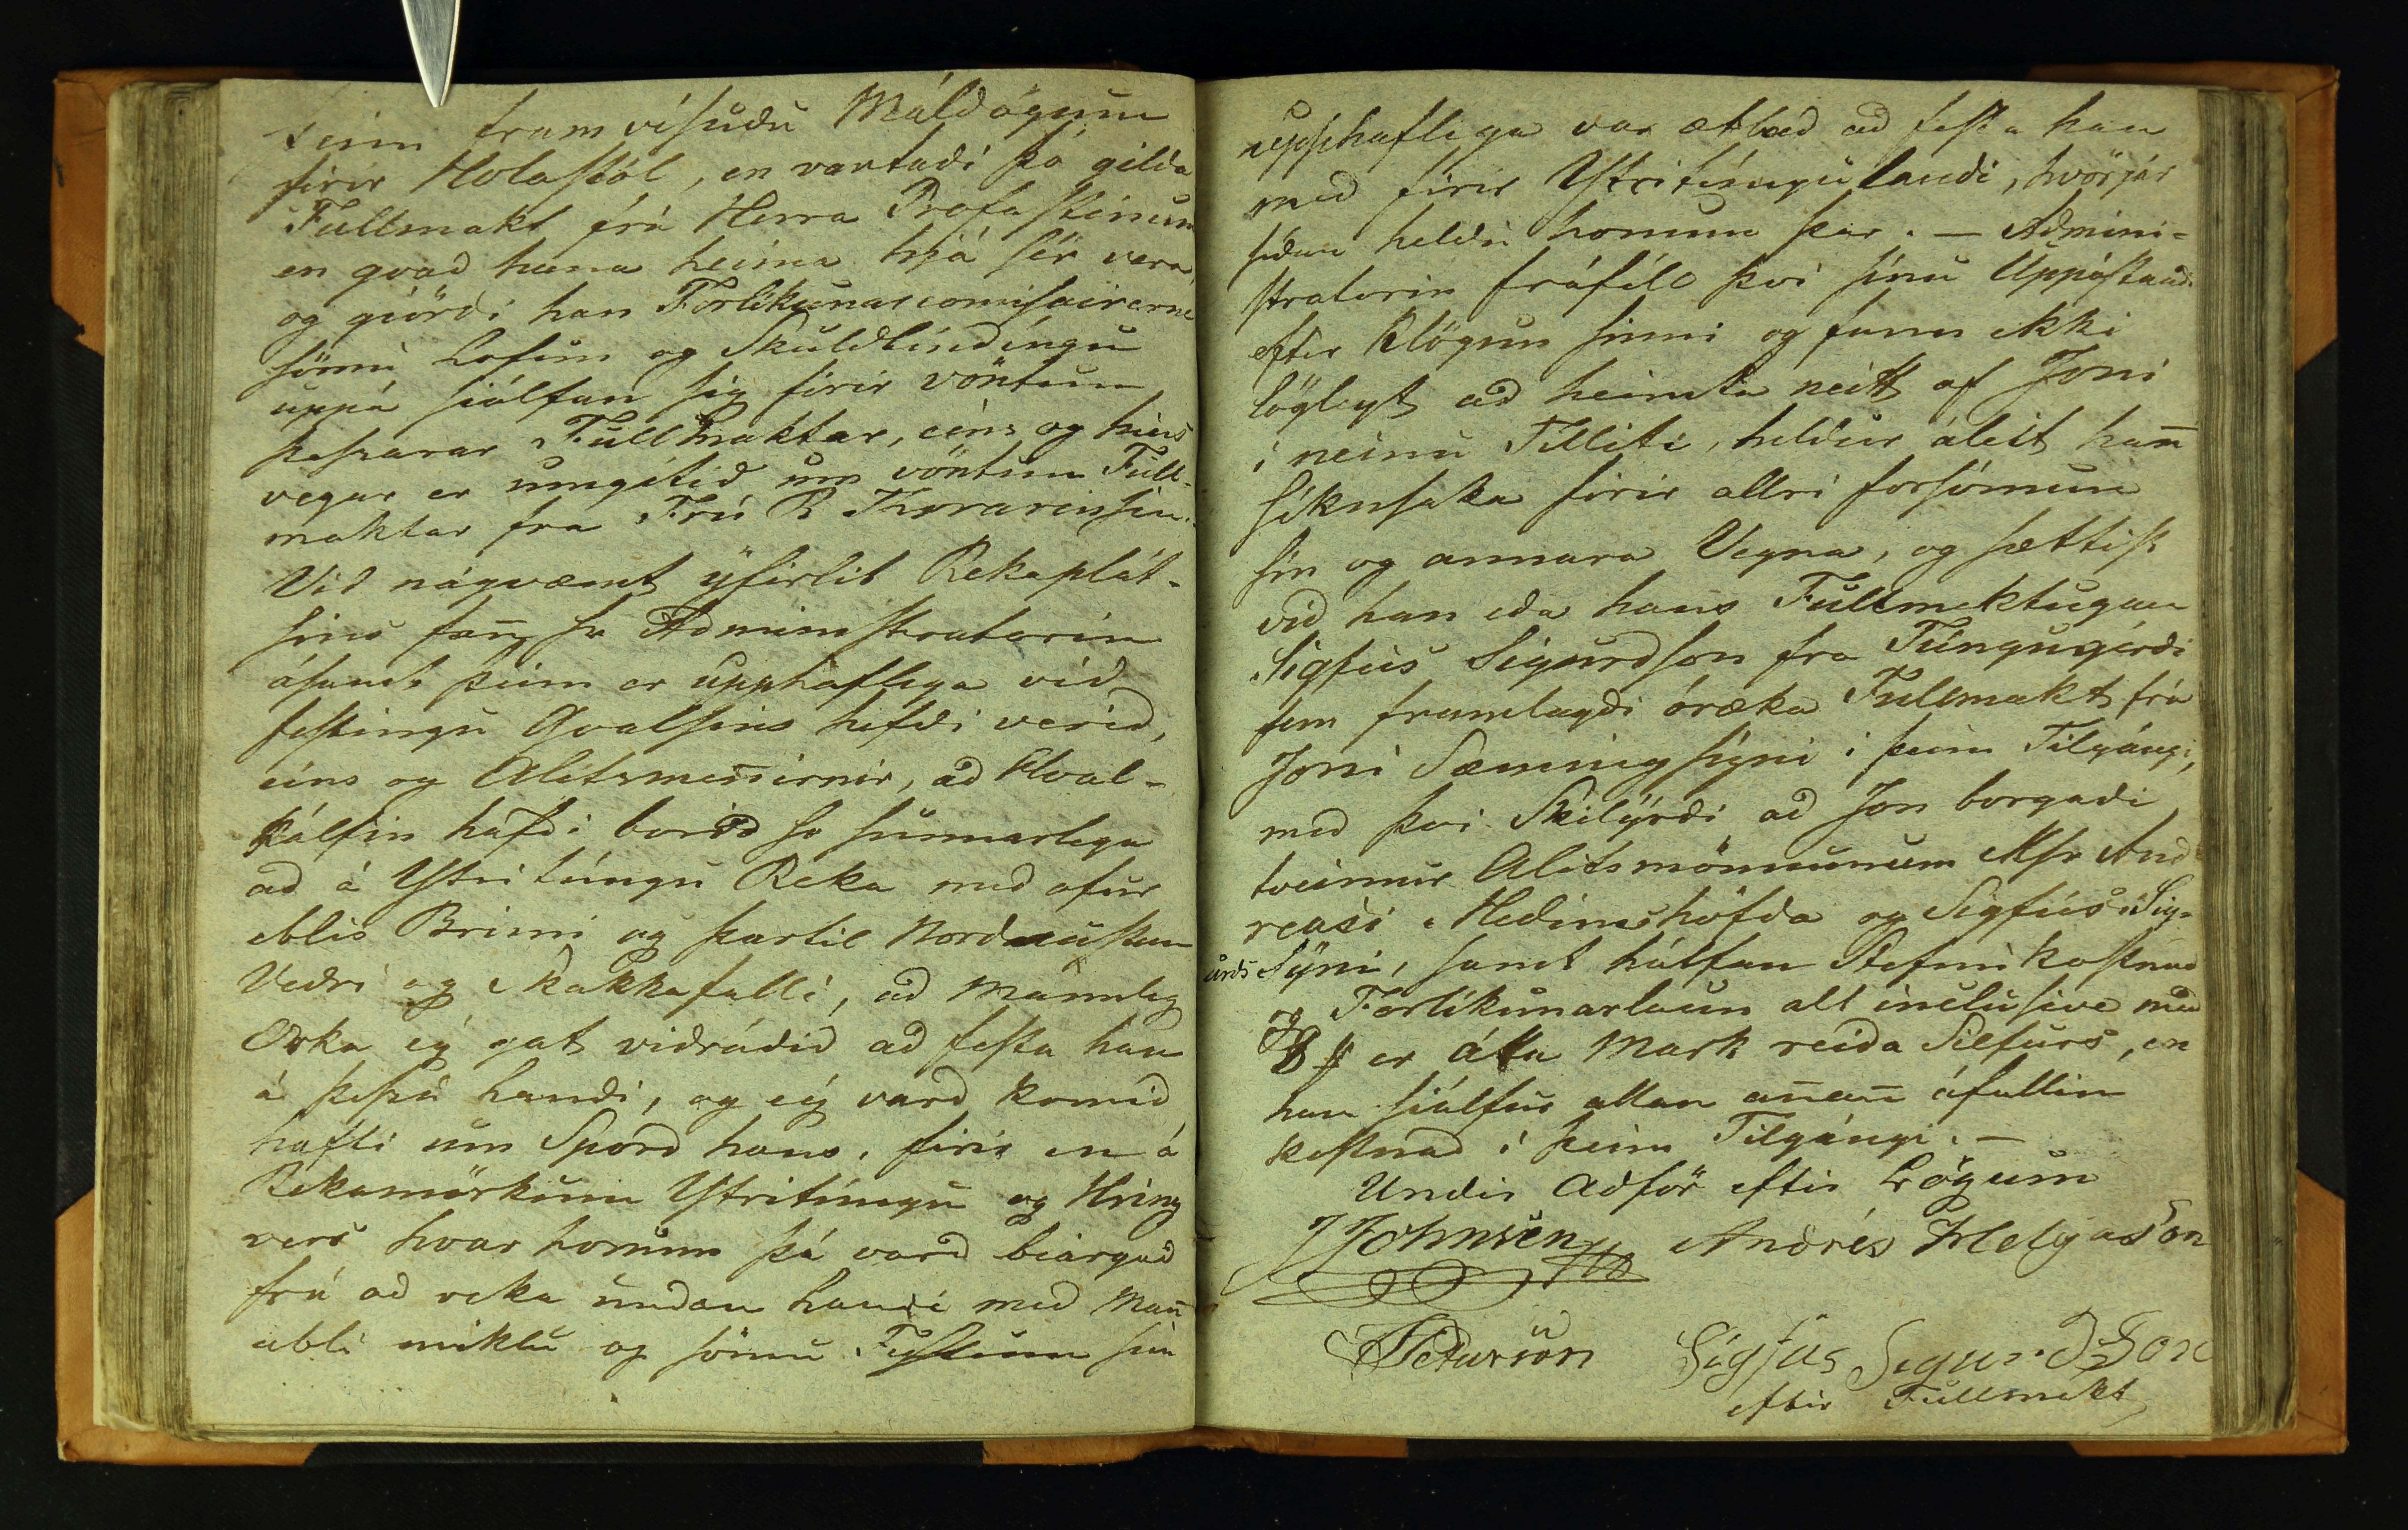 seinn framvísudu Máldögum
firir Holastól, en vantadi þo gilda
Fullmakt frá Herra Profastinum
en qvad hana heima hjá sér vera
og giördi han Forlikunarcomisairerne
sömu Lofun og Skuldbindingu
uppá siálfan sig firir vöntun
þessarar Fullmaktar, eins og hins
vegar er umgétid um vöntun Full-
maktar fra Frú B Thorarensin.
Vid nágvæmt yfirlit Rekaplát-
sins fan̄ so Administratorin
ásamt þeim er upphaflega vid
festingu Qvalsins hefdi verid,
eins og Alitsmen̄irnir, ad Hval-
kálfin hafdi borid so sunnarlega
ad á Ytritúngu Reka med ofur
ebli Brimi og þartil Nordaustan
Vedri og Skakkafalli, ad Mannleg
Orka ey gat vidrádid ad festa han
á þessu landi, og ey vard komid
hafti um Spord hans, firir en á
Rekamörkum Ytritúngu og Hring
vers hvar honum þá vard biargad
frá ad reka undan landi med Man̄
abli miklu og sömu Festum sem
upphaflega var ætlad ad festa han
med firir Ytritúngulandi, hvörjar
sidan heldu honum þar. — Admini-
stratorin fráféll því sinu Uppástandi
eftir Klögun sinni og fann ekki
löglegt ad heimta neitt af Joni
i neinu Tilliti, heldur áleit han̄
síknsaka firir allri forsömun
sin og annara Vegna, og sættist
vid han eda hans Fullmektugan
Sigfús Sigurdson fra Túngugerdi
sem framlagdi óræka Fullmakt frá
Joni Sæmingssyni i þeim Tilgángi,
med því Skilyrdi ad Jon borgadi
tveimur Alitsmönnunum Msr And
reasi á Hedinshöfda og Sigfúsi Sig-
urds Syni, samt hálfan Stefnukostnad
og Forlikunarlaun alt inclusive med
8 ₰ er átta Mark reida Silfurs, en
han siálfur allan an̄an̄ áfallin
kostnad i þeim Tilgángi. —
Undir Adför eftir Lögum
JJohnsen Andrés Helgason
Peturson Sigfús SigurdsSon
eftir Fullmakt